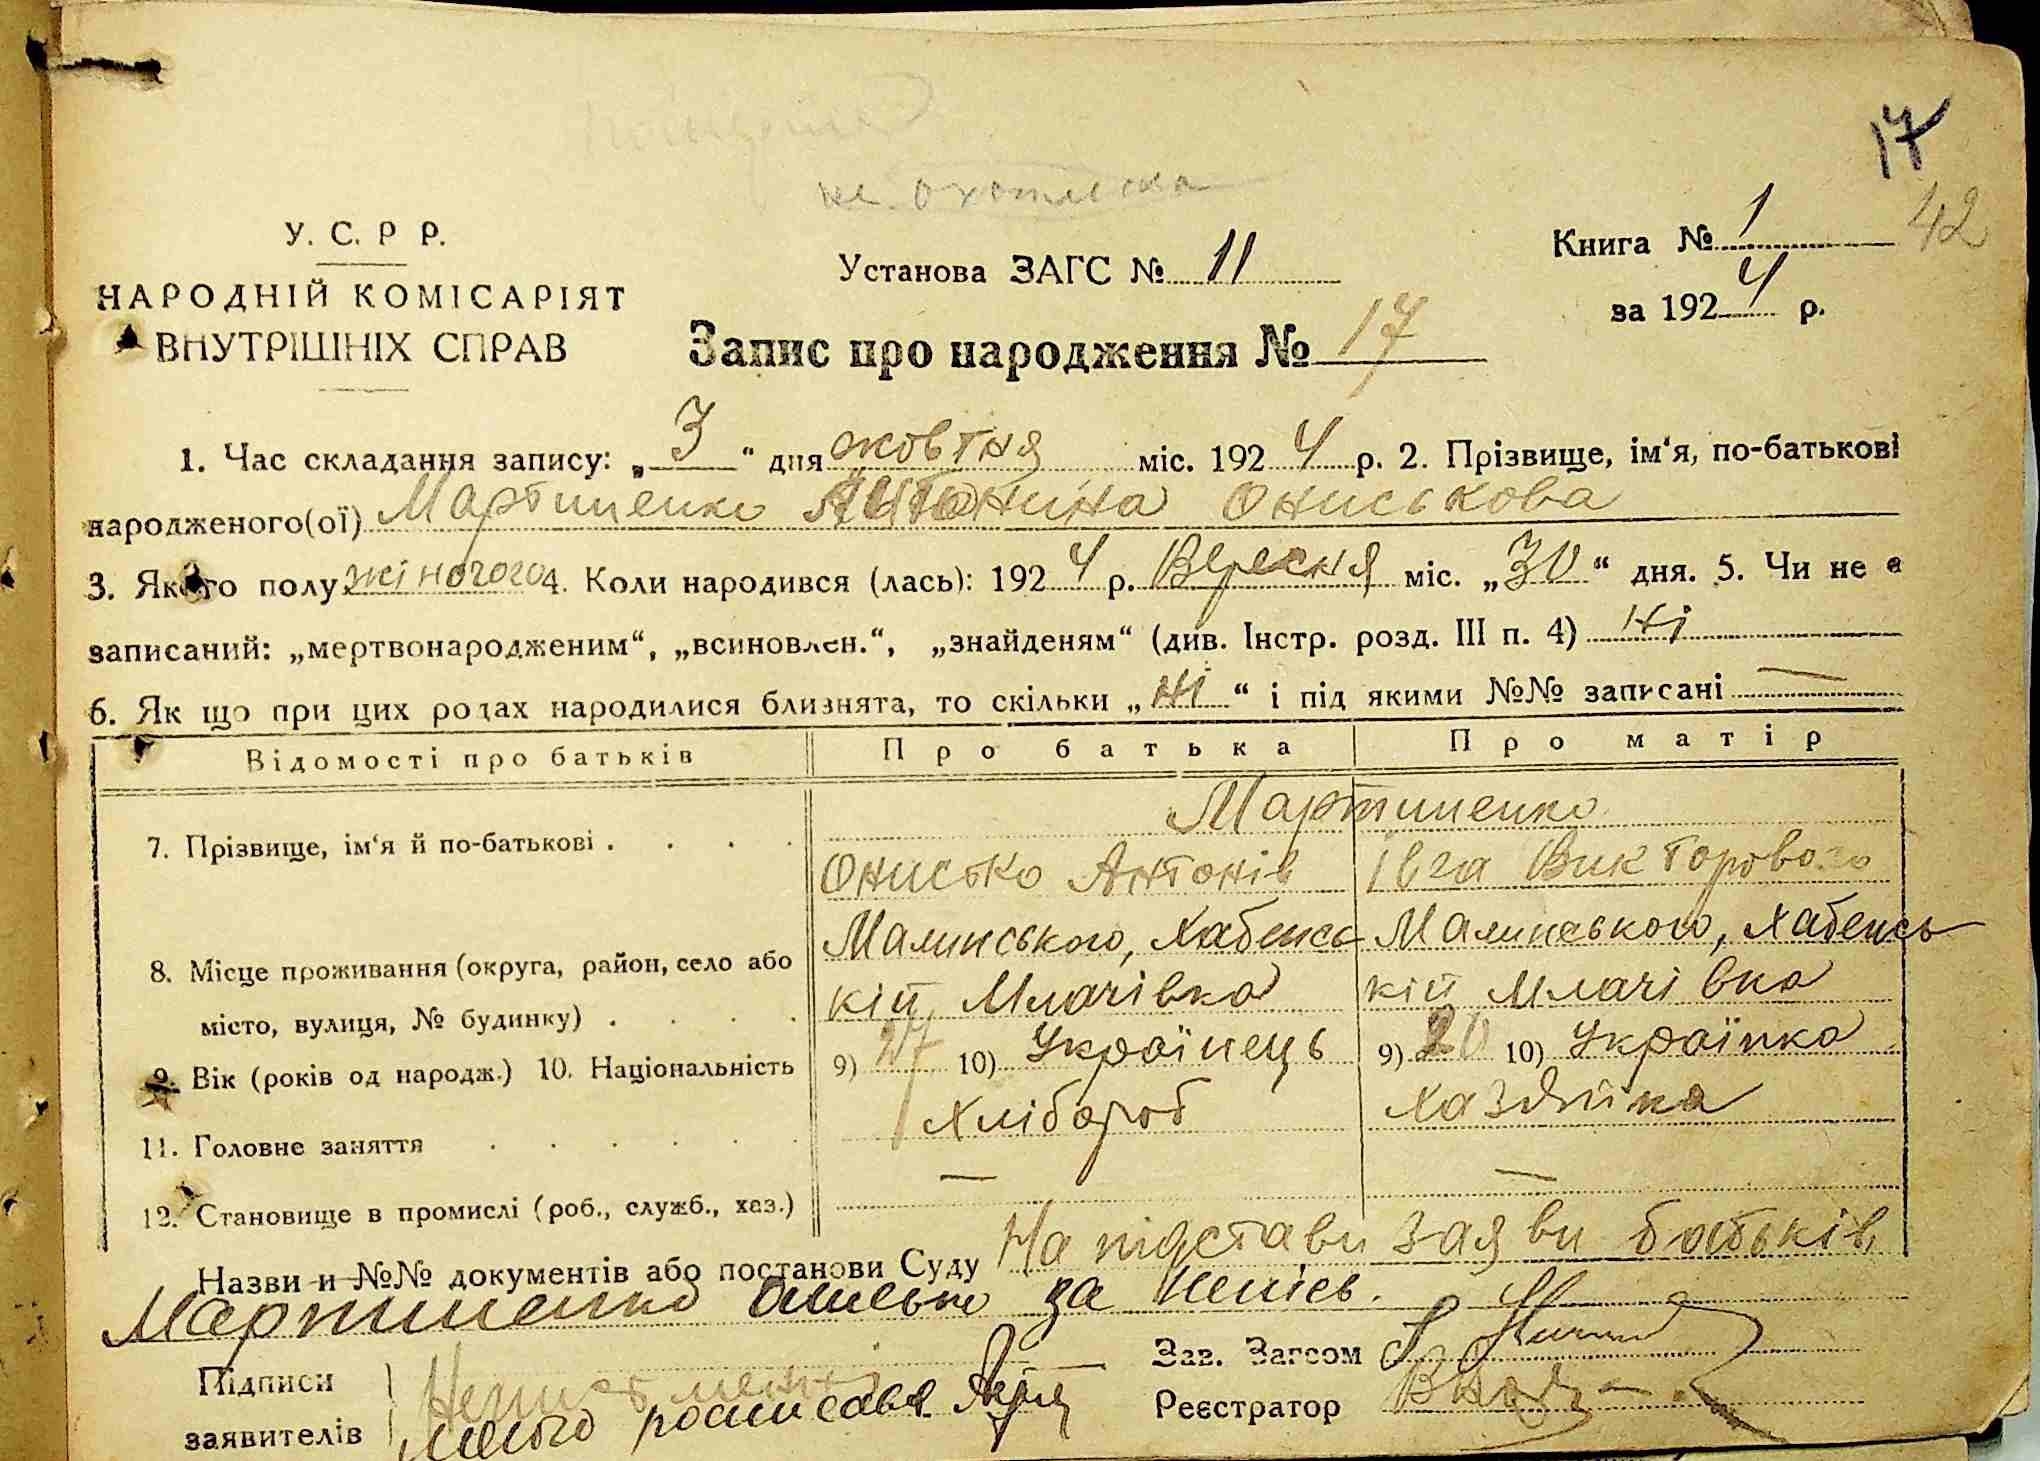 17
42
У. С. Р Р.
НАРОДНІЙ КОМІСАРІЯТ
ВНУТРІШНІХ СПРАВ
Установа ЗАГС № 11
Книга № 1
за 1924 р.
Запис про народження № 17
1. Час складання запису: „3“ дня жовтня міс. 1924 р. 2. Прізвище, ім‘я, по-батькові
народженого(ої) Мартиненко Антоніна Ониськова
3. Якого полу жіночого 4. Коли народився (лась): 1924 р. Вересня міс. „30“ дня. 5. Чи не є
записаний: „мертвонародженим“, „всиновлен.“, „знайденям“ (див. Інстр. розд. III п. 4) ні
6. Як що при цих родах народилися близнята, то скільки „ні“ і під якими №№ записані —
Відомості про батьків Про батька Про матір
Мартиненко
7. Прізвище, ім‘я й по-батькові . . . . Онисько Антонів Івга Викторово
Малинського, Хабенсь Малинського, Хабенсь
8. Місце проживання (округа, район, село або
кій Млачівка кій Млачівка
місто, вулиця, № будинку) . . . .
9. Вік (років од народж.) 10. Національність 9) 27 10) Українець 9) 20 10) Українка
11. Головне заняття . . . . . Хлібороб Хазяйка
12. Становище в промислі (роб., служб., хаз.) — —
Назви и №№ документів або постанови Суду На підстави заяви батьків
Мартиненко Онисько за непісь.
Підписи
заявителів
росписався
Зав. Загсом
Реєстратор